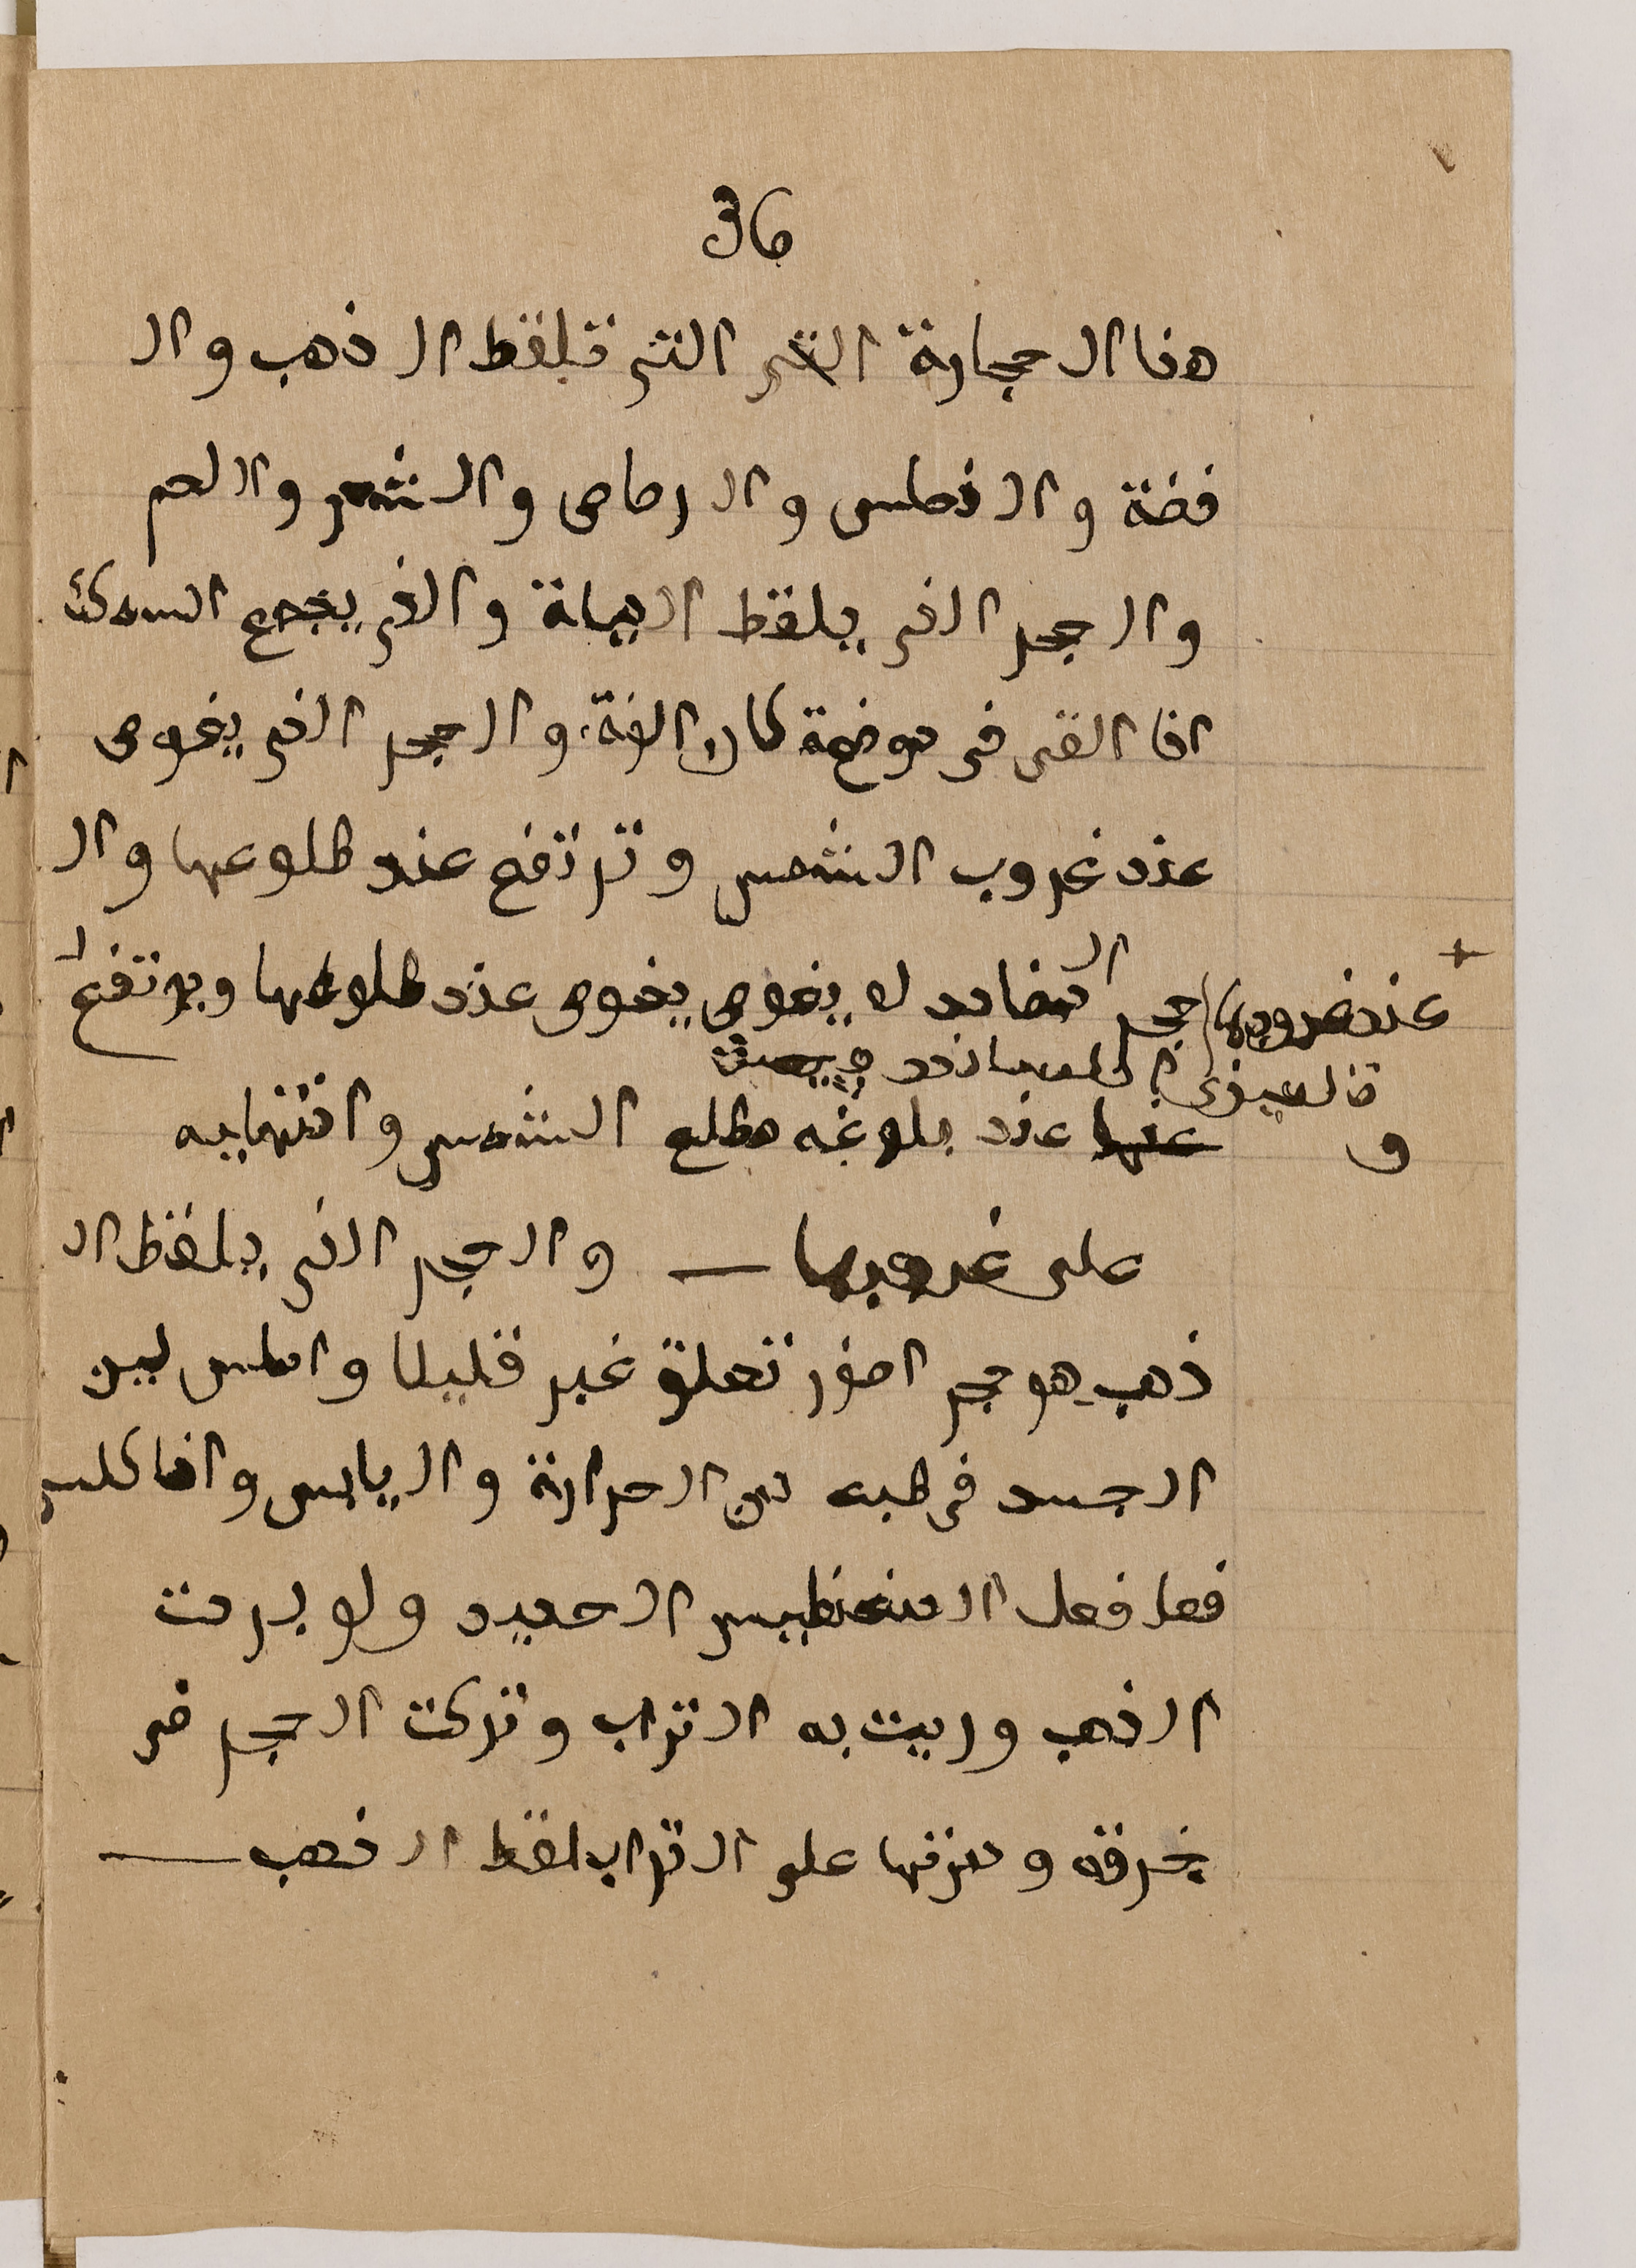 36
هذا الحجارة التى التى تلقط الذهب وال
فضة والنحاس والرصاص والشعر واللحم
والحجر الذى يلقط المياة والذى يجمع السمك
اذا القى فى موضعة كان الغة والحجر الذى يغوص
عند غروب الشمس وترتفع عند طلوعها وال
حجر المضادد له يغوص يغوص عند طلوعها ويرتفع
عند غروبها
عنها عند بلوغه مطلع الشمس وانتهايه
و
على غروبها — والحجر الذى يلقط ال
ذهب هو حجر اصفر تعلق غبر قليلا واملس لين
الجسد فى طبه من الحرارة واليابس واذا كلس
فعل فعل المغنطيس الحديد ولو بردت
الذهب ورميت به التراب وتركت الحجر فى
خرقة و على التراب لقط الذهب —